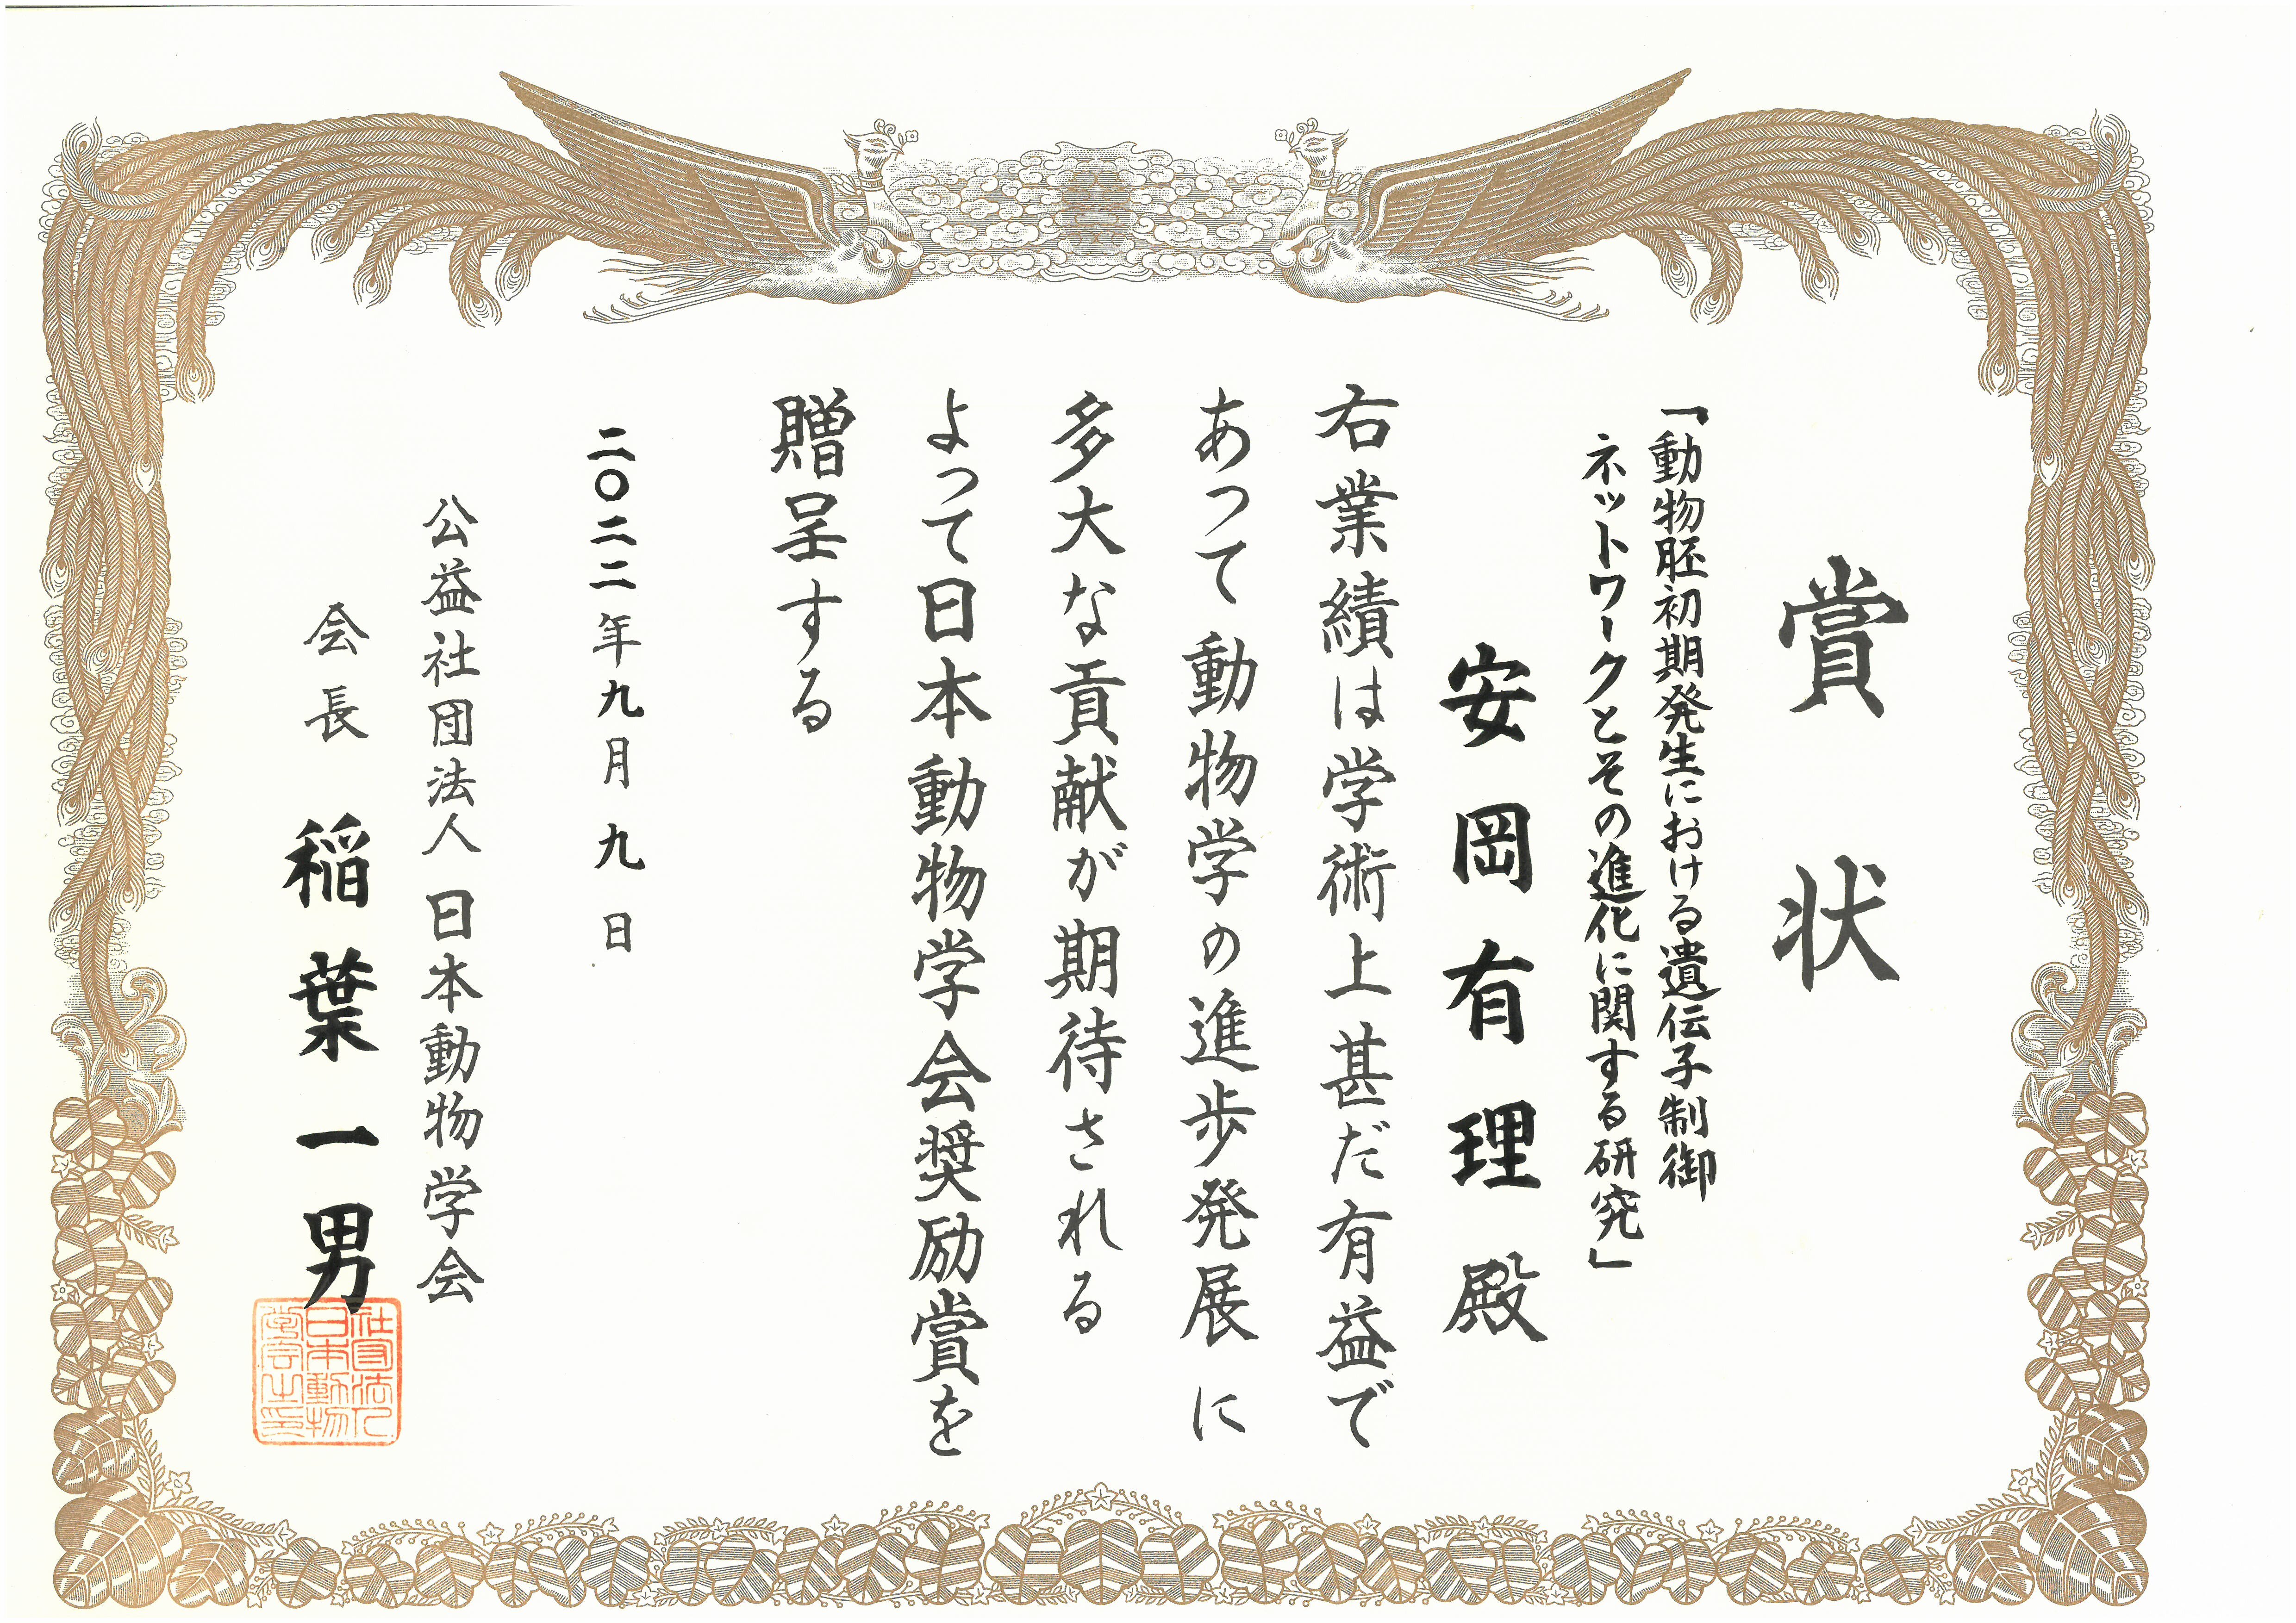 賞状
「動物胚初期発生における遺伝子制御
ネットワークとその進化に関する研究」
安岡有理殿
右業績は学術上甚だ有益で
あって動物学の進歩発展に
多大な貢献が期待される
よって日本動物学会奨励賞を
贈呈する
二〇二二年九月九日
公益社団法人日本動物学会
会長 稲葉一男
社団法人
日本動物
学会之印